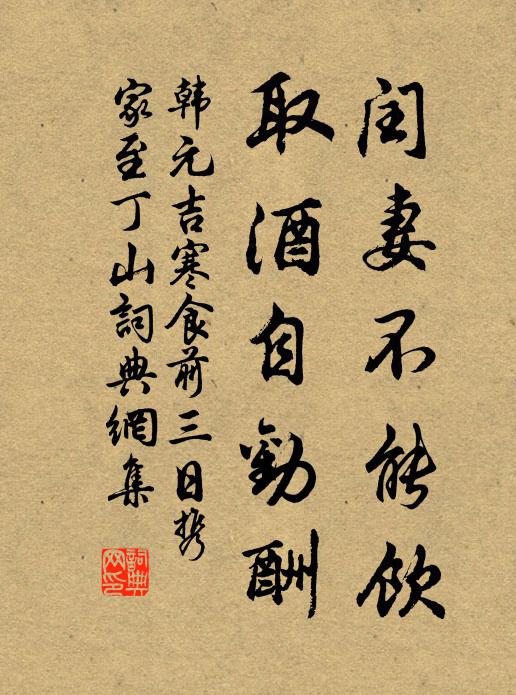 闺妻不能饮
取酒自勸酬
韩元吉寒食前三日携
家至丁山詞典網集
詞典网印